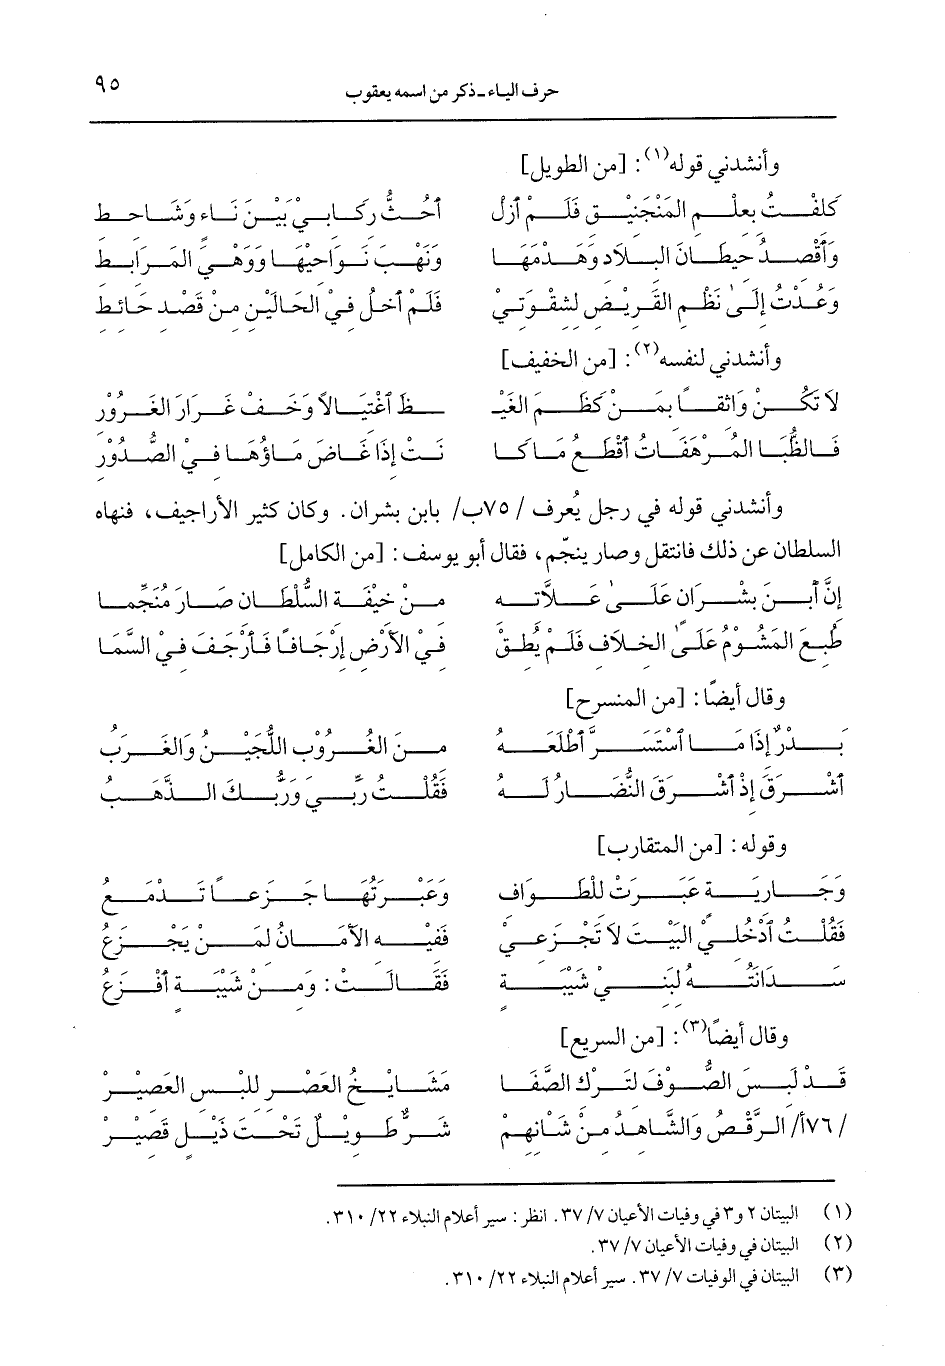 حرف الياء ـ ذكر من اسمه يعقوب ٩٥
وأنشدني قوله(١): [من الطويل]
كلفْتُ بعلمِ المَنْجنيقِ فَلَمْ أزلْ أحُثُّ ركَابيْ بَيْنَ نَاءٍ وشَاحط
وَأقْصدُ حيطَانَ البلادِ وَهَدْمَهَا وَنَهْبَ نَواحيْهَا وَوَهْيَ المَرَابط
وَعُدْتُ إلىٰ نَظْمِ القريْضِ لشقْوَتيْ فَلَمْ أخلُ فيْ الحَالَيْنِ منْ قَصْدِ حَائط
وأنشدني لنفسه(٢): [من الخفيف]
لاَ تَكُنْ وَاثقاً بمَنْ كَظَمَ الغَيْـ ـظَ ٱغْتيَالاً وَخَفْ غَرَارَ الغَرُوْر
فَالظُّبَا المُرْهَفَاتُ أقْطَعُ مَا كَا نَتْ إذَا غَاضَ مَاؤُهَا فيْ الصُّدُوْر
وأنشدني قوله في رجل يُعرف /٧٥ب/ بابن بشران. وكان كثير الأراجيف، فنهاه
السلطان عن ذلك فانتقل وصار ينجّم، فقال أبو يوسف: [من الكامل]
إنَّ ٱبنَ بشْرَان عَلَىٰ علاَّته منْ خيْفَة السُّلْطَان صَارَ مُنَجِّمَا
طُبعَ المَشُوْمُ عَلَىٰ الخلاَف فَلَمْ يُطقْ فيْ الأرْضِ إرْجَافًا فَأرْجَفَ فيْ السَّمَا
وقال أيضًا: [من المنسرح]
بَدْرٌ إذَا مَا ٱسْتَسَرَّ أطْلَعَهُ منَ الغُرُوْب اللُّجَيْنُ وَالغَرَبُ
أشْرَقَ إذْ أشْرَقَ النُّضَارُ لَهُ فَقُلْتُ ربِّي وَرَبُّكَ الذَّهَبُ
وقوله: [من المتقارب]
وَجَاريَةٍ عَبَرَتْ للْطَوَاف وَعَبْرَتُهَا جَزَعاً تَدْمَعُ
فَقُلْتُ ٱدْخُليْ البَيْتَ لاَ تَجْزَعيْ فَفيْهِ الأمَانُ لمَنْ يَجْزَعُ
سَدَانَتُهُ لبَنيْ شَيْبَة فَقَالَتْ: وَمنْ شَيْبَةٍ أفْزَعُ
وقال أيضاً(٣): [من السريع]
قَدْ لَبسَ الصُّوْفَ لتَرْك الصَّفَا مَشَايخُ العَصْرِ للُبْسِ العَصيْرْ
/٧٦أ/ الرَّقْصُ وَالشَّاهدُ منْ شَانهمْ شَرٌّ طَويْلٌ تَحْتَ ذَيْلٍ قَصيْرْ
(١) البيتان ٢ و٣ في وفيات الأعيان ٧/ ٣٧. انظر: سير أعلام النبلاء ٢٢/ ٣١٠.
(٢) البيتان في وفيات الأعيان ٧/ ٣٧.
(٣) البيتان في الوفيات ٧/ ٣٧. سير أعلام النبلاء ٢٢/ ٣١٠.